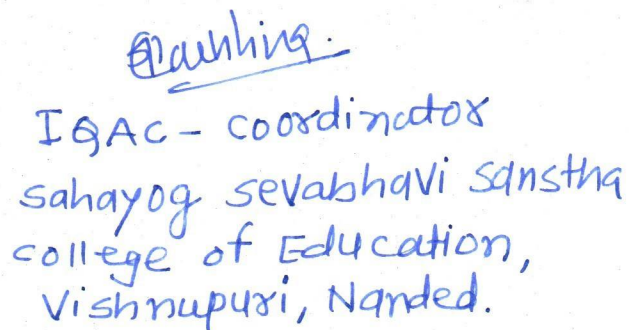 IQAC - coordinator
sahayog sevabhavi sanstha
college of Education,
Vishnupuri, Nanded.